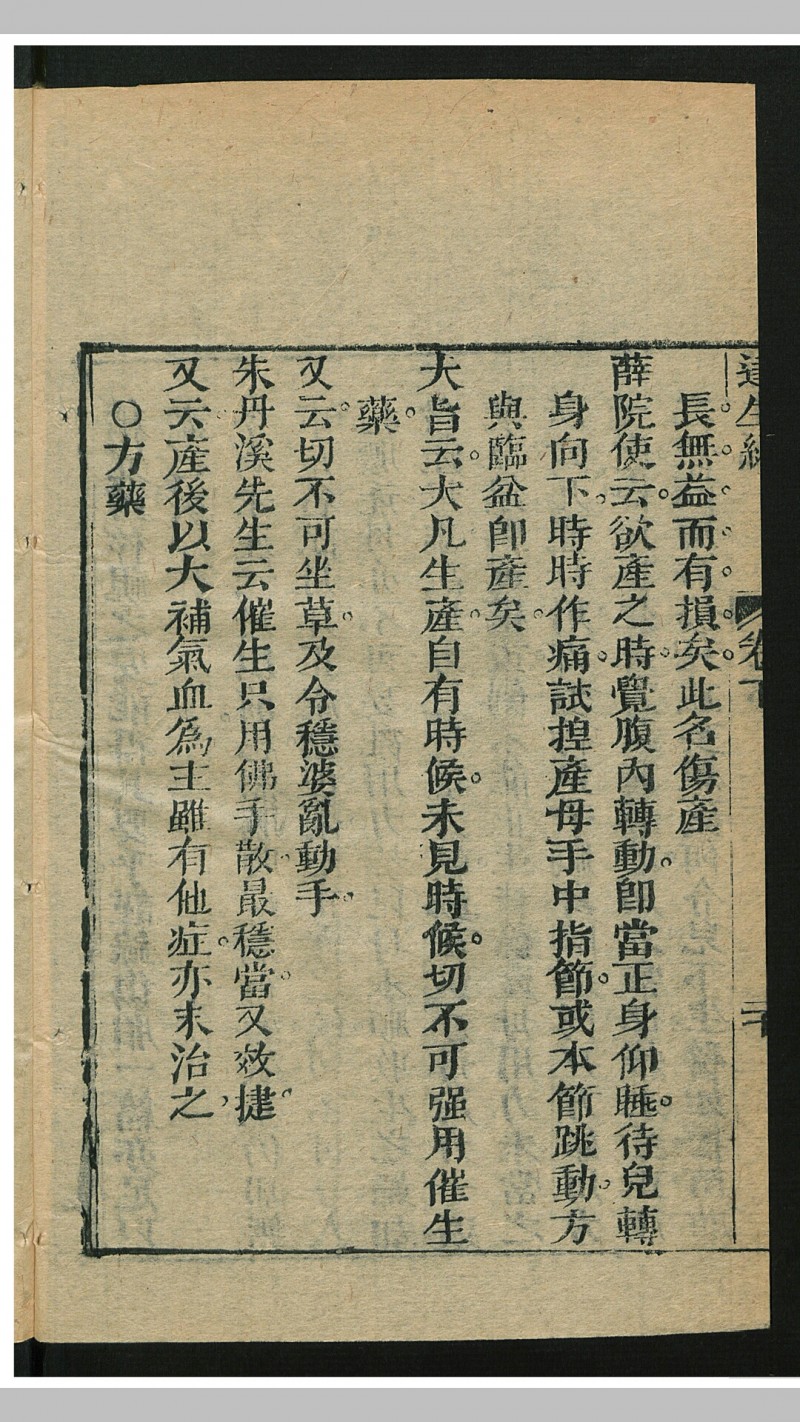 達生編 卷下 二十
長無益而有損矣此名傷產
薛院使云欲產之時覺腹內轉動卽當正身仰睡待兒轉
身向下時時作痛試揑產母手中指節或本節跳動方
與臨盆卽產矣
大旨云大凡生產自有時候未見時候切不可强用催生
藥
又云切不可坐草及令穩婆亂動手
朱丹溪先生云催生只用佛手散最穩當又效捷
又云產後以大補氣血為主雖有他症亦末治之
○方藥